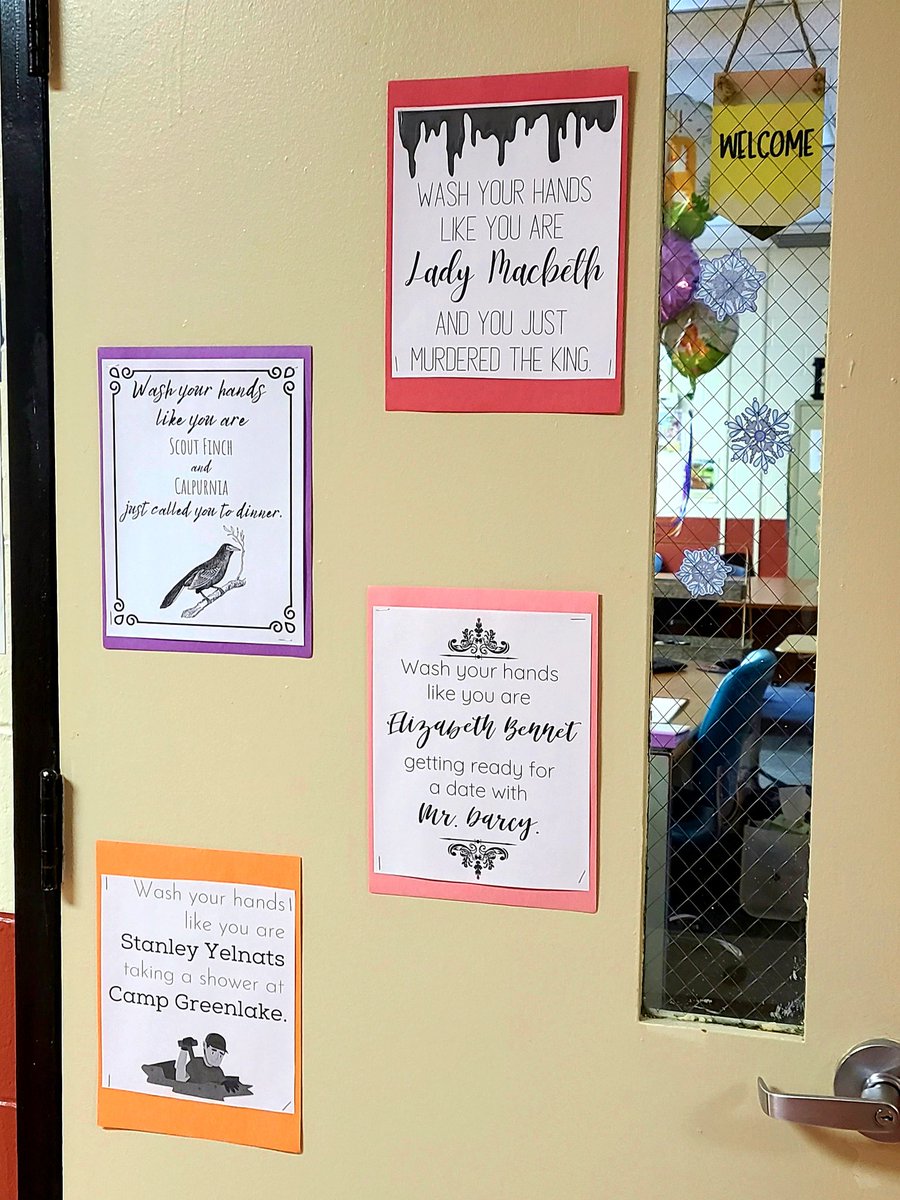 WELCOME
WASH YOUR HANDS
LIKE YOU ARE
Lady Macbeth
AND YOU JUST
MURDERED THE KING.
Wash your hands
like you are
SCOUT FINCH
and
CALPURNIA
just called you to dinner.
Wash your hands
like you are
Elizabeth Bennet
getting ready for
a date with
Mr. Darcy.
Wash your hands
like you are
Stanley Yelnats
taking a shower at
Camp Greenlake.